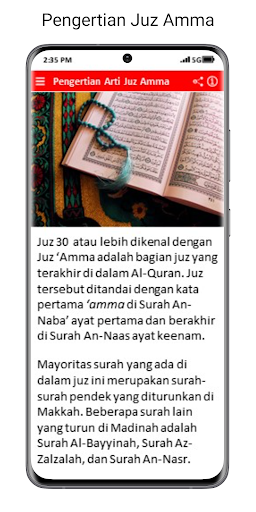 Pengertian Juz Amma
2:35 PM
5G
Pengertian Arti Juz Amma
Juz 30 atau lebih dikenal dengan
Juz ‘Amma adalah bagian juz yang
terakhir di dalam Al-Quran. Juz
tersebut ditandai dengan kata
pertama ‘amma di Surah An-
Naba’ ayat pertama dan berakhir
di Surah An-Naas ayat keenam.
Mayoritas surah yang ada di
dalam juz ini merupakan surah-
surah pendek yang diturunkan di
Makkah. Beberapa surah lain
yang turun di Madinah adalah
Surah Al-Bayyinah, Surah Az-
Zalzalah, dan Surah An-Nasr.